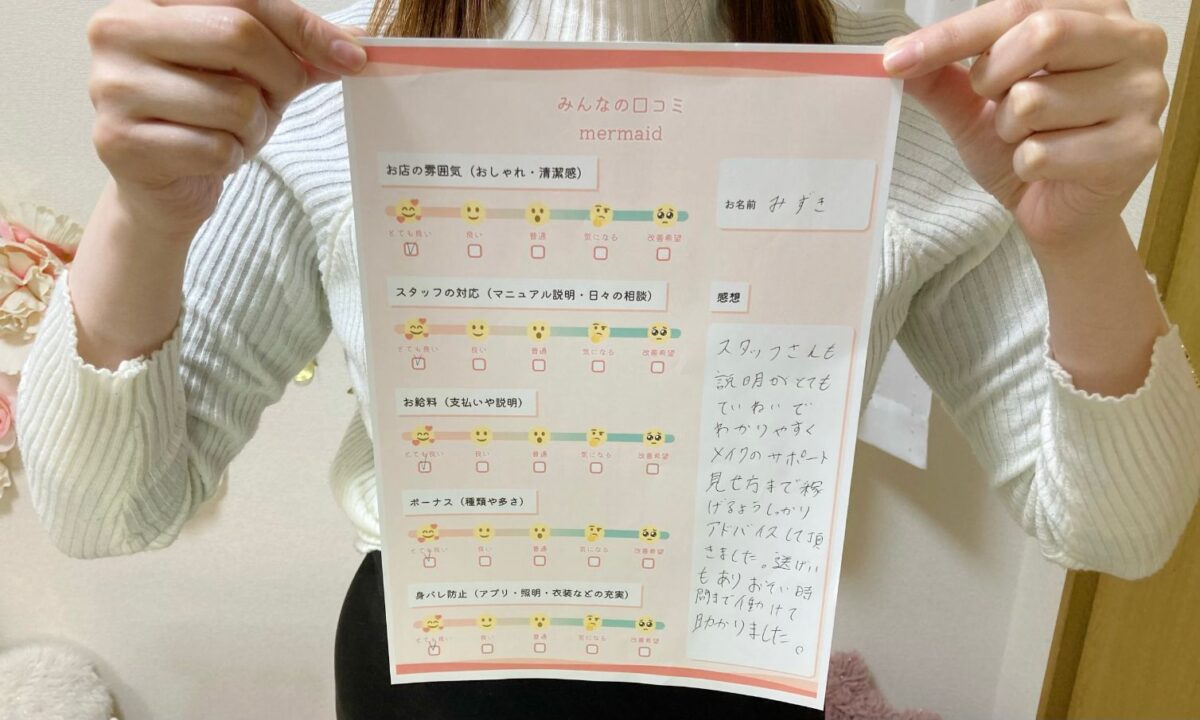 みんなの口コミ
mermaid
お店の雰囲気（おしゃれ・清潔感）
とても良い 良い 普通 気になる 改善希望
スタッフの対応（マニュアル説明・日々の相談）
とても良い 良い 普通 気になる 改善希望
お給料（支払いや説明）
とても良い 良い 普通 気になる 改善希望
ボーナス（種類や多さ）
とても良い 良い 普通 気になる 改善希望
身バレ防止（アプリ・照明・衣装などの充実）
とても良い 良い 普通 気になる 改善希望
お名前 みずき
感想
スタッフさんも
説明がとても
ていねいで
わかりやすく
メイクのサポート
見せ方まで稼
げるようしっかり
アドバイスして頂
きました。送げい
もありおそい時
間まで働けて
助かりました。